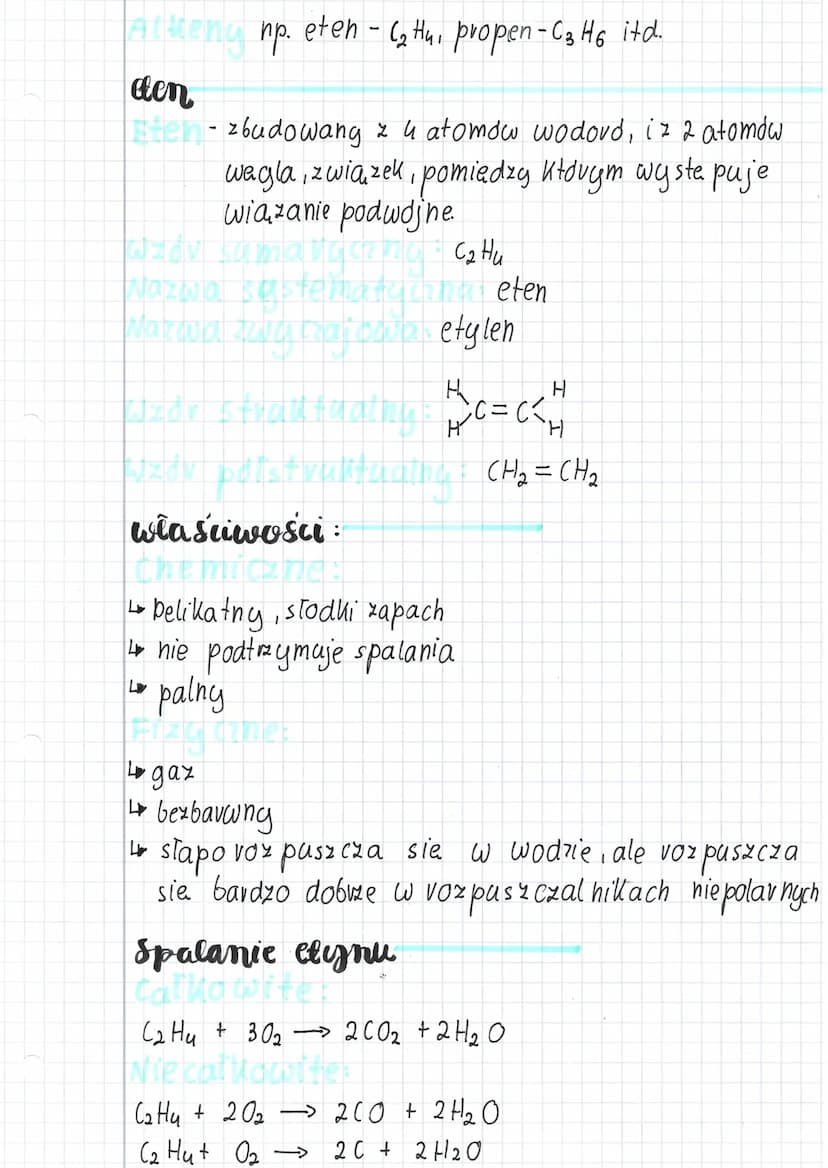 Alkeny np. eten - C₂H₄, propen - C₃H₆ itd.
eten
Eten - zbudowany z 4 atomów wodoru, i z 2 atomów
węgla, związek, pomiędzy którym wystę puje
wiązanie podwójne.
Wzór sumaryczny: C₂H₄
Nazwa systematyczna: eten
Nazwa zwyczajowa: etylen
H H
Wzór struktualny: C=C
H H
Wzór półstruktualny: CH₂=CH₂
właściwości:
Chemiczne:
↳ Delikatny, słodki zapach
↳ nie podtrzymuje spalania
↳ palny
Fizyczne:
↳ gaz
↳ bezbarwny
↳ słabo rozpuszcza się w wodzie, ale rozpuszcza
się bardzo dobrze w rozpuszczalnikach niepolarnych
Spalanie etynu
Całkowite:
C₂H₄ + 3O₂ → 2CO₂ + 2H₂O
Niecałkowite:
C₂H₄ + 2O₂ → 2CO + 2H₂O
C₂H₄ + O₂ → 2C + 2H₂O